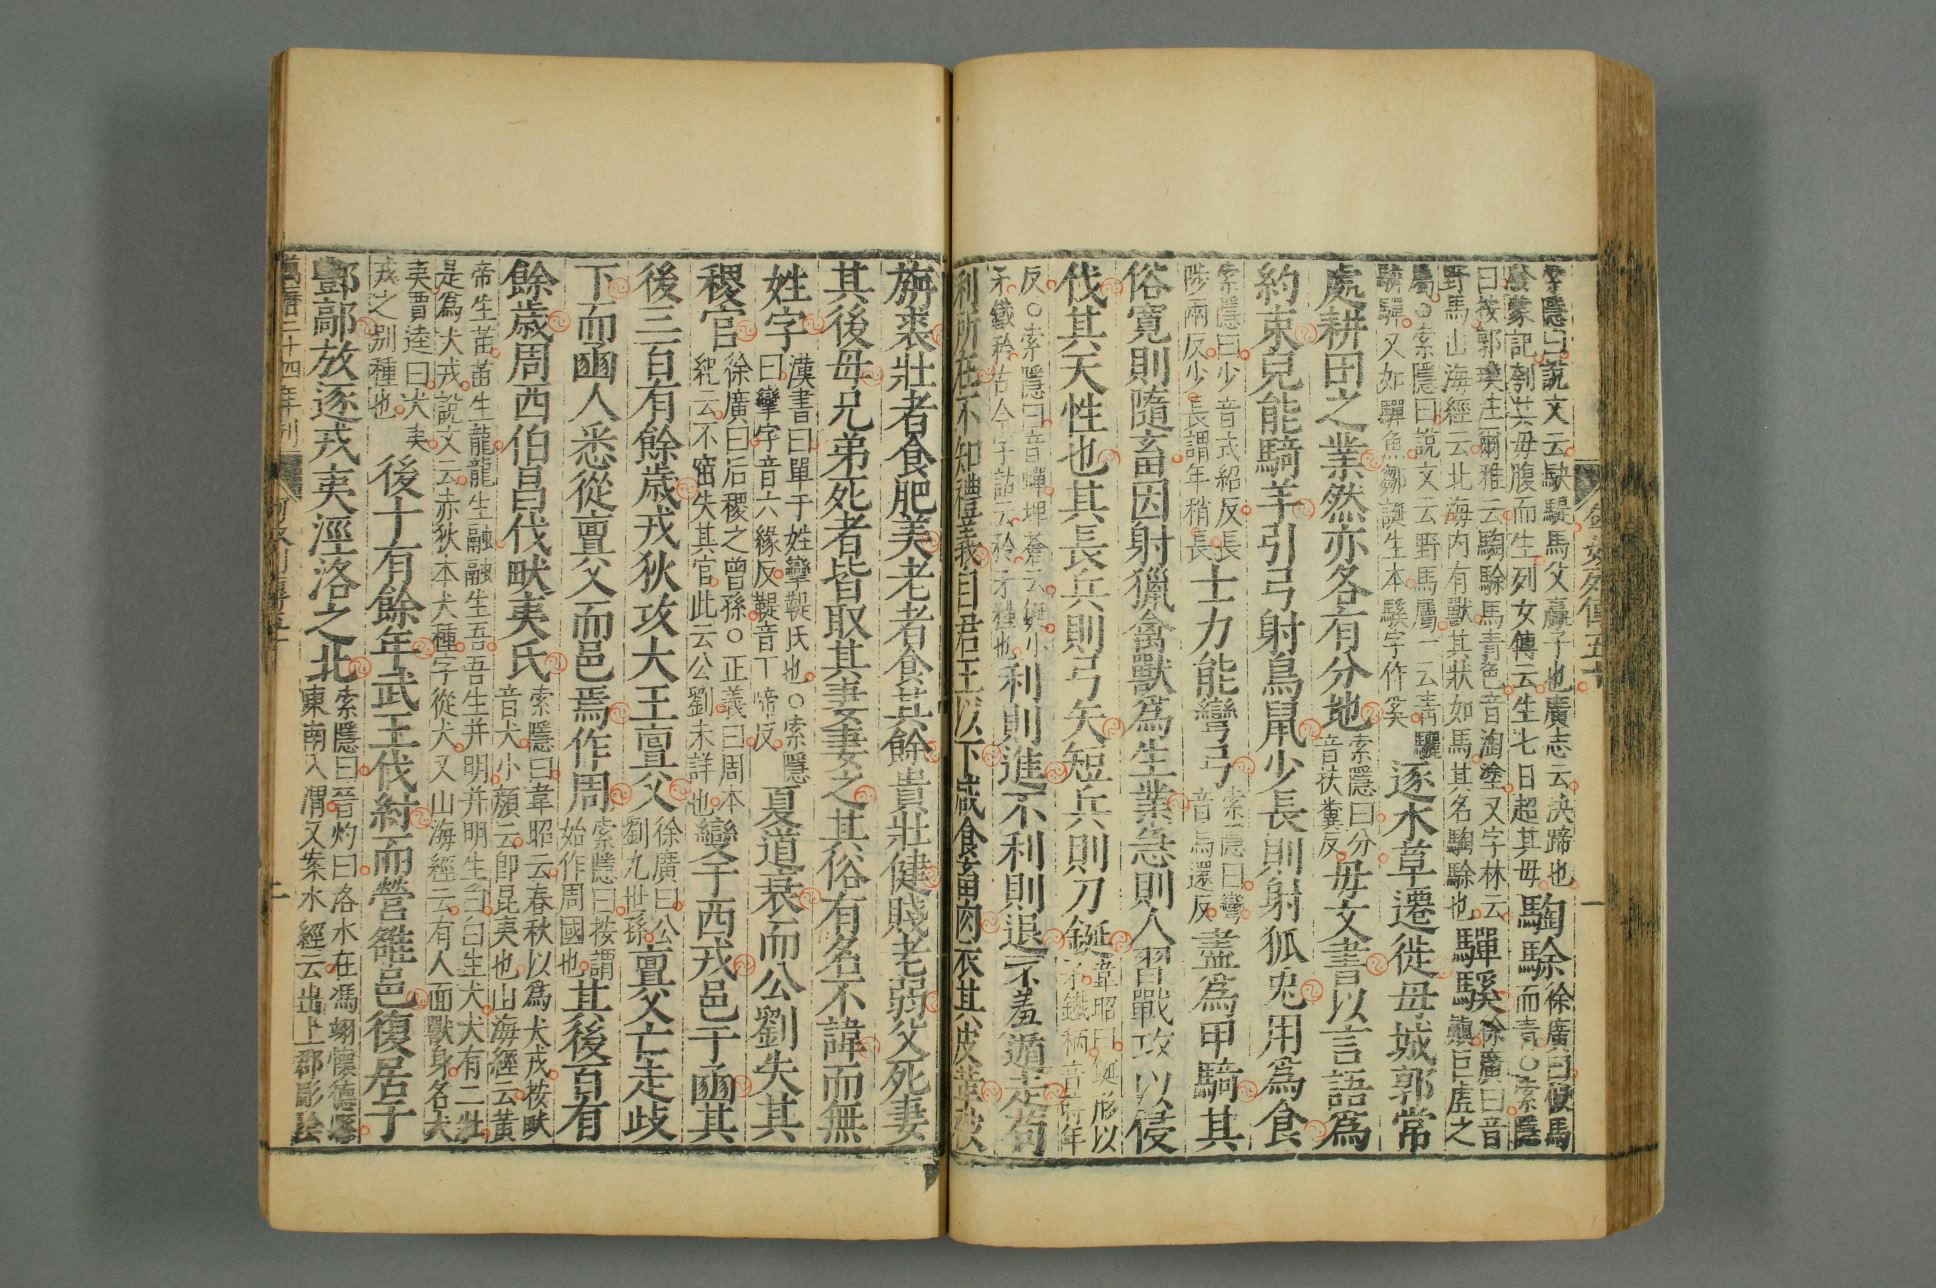 索隱曰說文云駃騠馬父驘子也廣志云決蹄也
發蒙記刳其母腹而生列女傳云生七日超其母
騊駼
徐廣曰似馬
而青○索隱
曰按郭璞注爾雅云騊駼馬青色音淘塗又字林云
野馬山海經云北海內有獸其狀如馬其名騊駼也
驒騱
徐廣曰音
顛巨虛之
屬○索隱曰說文云野馬屬一云青驪
驎驒又如鼉魚鄒誕生本騱字作奚
逐水草遷徙毋城郭常
處耕田之業然亦各有分地
索隱曰分
音扶糞反
毋文書以言語爲
約束兒能騎羊引弓射鳥鼠少長則射狐兎用爲食
索隱曰少音式紹反長
陟兩反少長謂年稍長
士力能彎弓
索隱曰彎
音烏還反
盡爲甲騎其
俗寬則隨畜因射獵禽獸爲生業急則人習戰攻以侵
伐其天性也其長兵則弓矢短兵則刀鋋
韋昭曰鋋形似
矛鐵柄音時年
反○索隱曰音蟬埤蒼云鋋小
矛鐵矜古今字詁云矜矛種也
利則進不利則退不羞遁走苟
利所在不知禮義自君王以下咸食畜肉衣其皮革被
旃裘壯者食肥美老者食其餘貴壯健賤老弱父死妻
其後母兄弟死者皆取其妻妻之其俗有名不諱而無
姓字
漢書曰單于姓攣鞮氏也○索隱
曰攣字音六緣反鞮音丁啼反
夏道衰而公劉失其
稷官
徐廣曰后稷之曾孫○正義曰周本
紀云不窋失其官此云公劉未詳也
變于西戎邑于豳其
後三百有餘歲戎狄攻大王亶父
徐廣曰公
劉九世孫
亶父亡走歧
下而豳人悉從亶父而邑焉作周
索隱曰按謂
始作周國也
其後百有
餘歲周西伯昌伐畎夷氏
索隱曰韋昭云春秋以爲犬戎按畎
音犬小顏云即昆夷也山海經云黃
帝生苗苗生龍龍生融融生吾吾生并明并明生白白生犬犬有二牡
是爲犬戎說文云赤狄本犬種字從犬又山海經云有人面獸身名犬
夷賈逵曰犬夷
戎之别種也
後十有餘年武王伐紂而營雒邑復居于
酆鄗放逐戎夷涇洛之北
索隱曰晉灼曰洛水在馮翊懷德縣
東南入渭又案水經云出上郡彫陰
萬曆二十四年刊
二